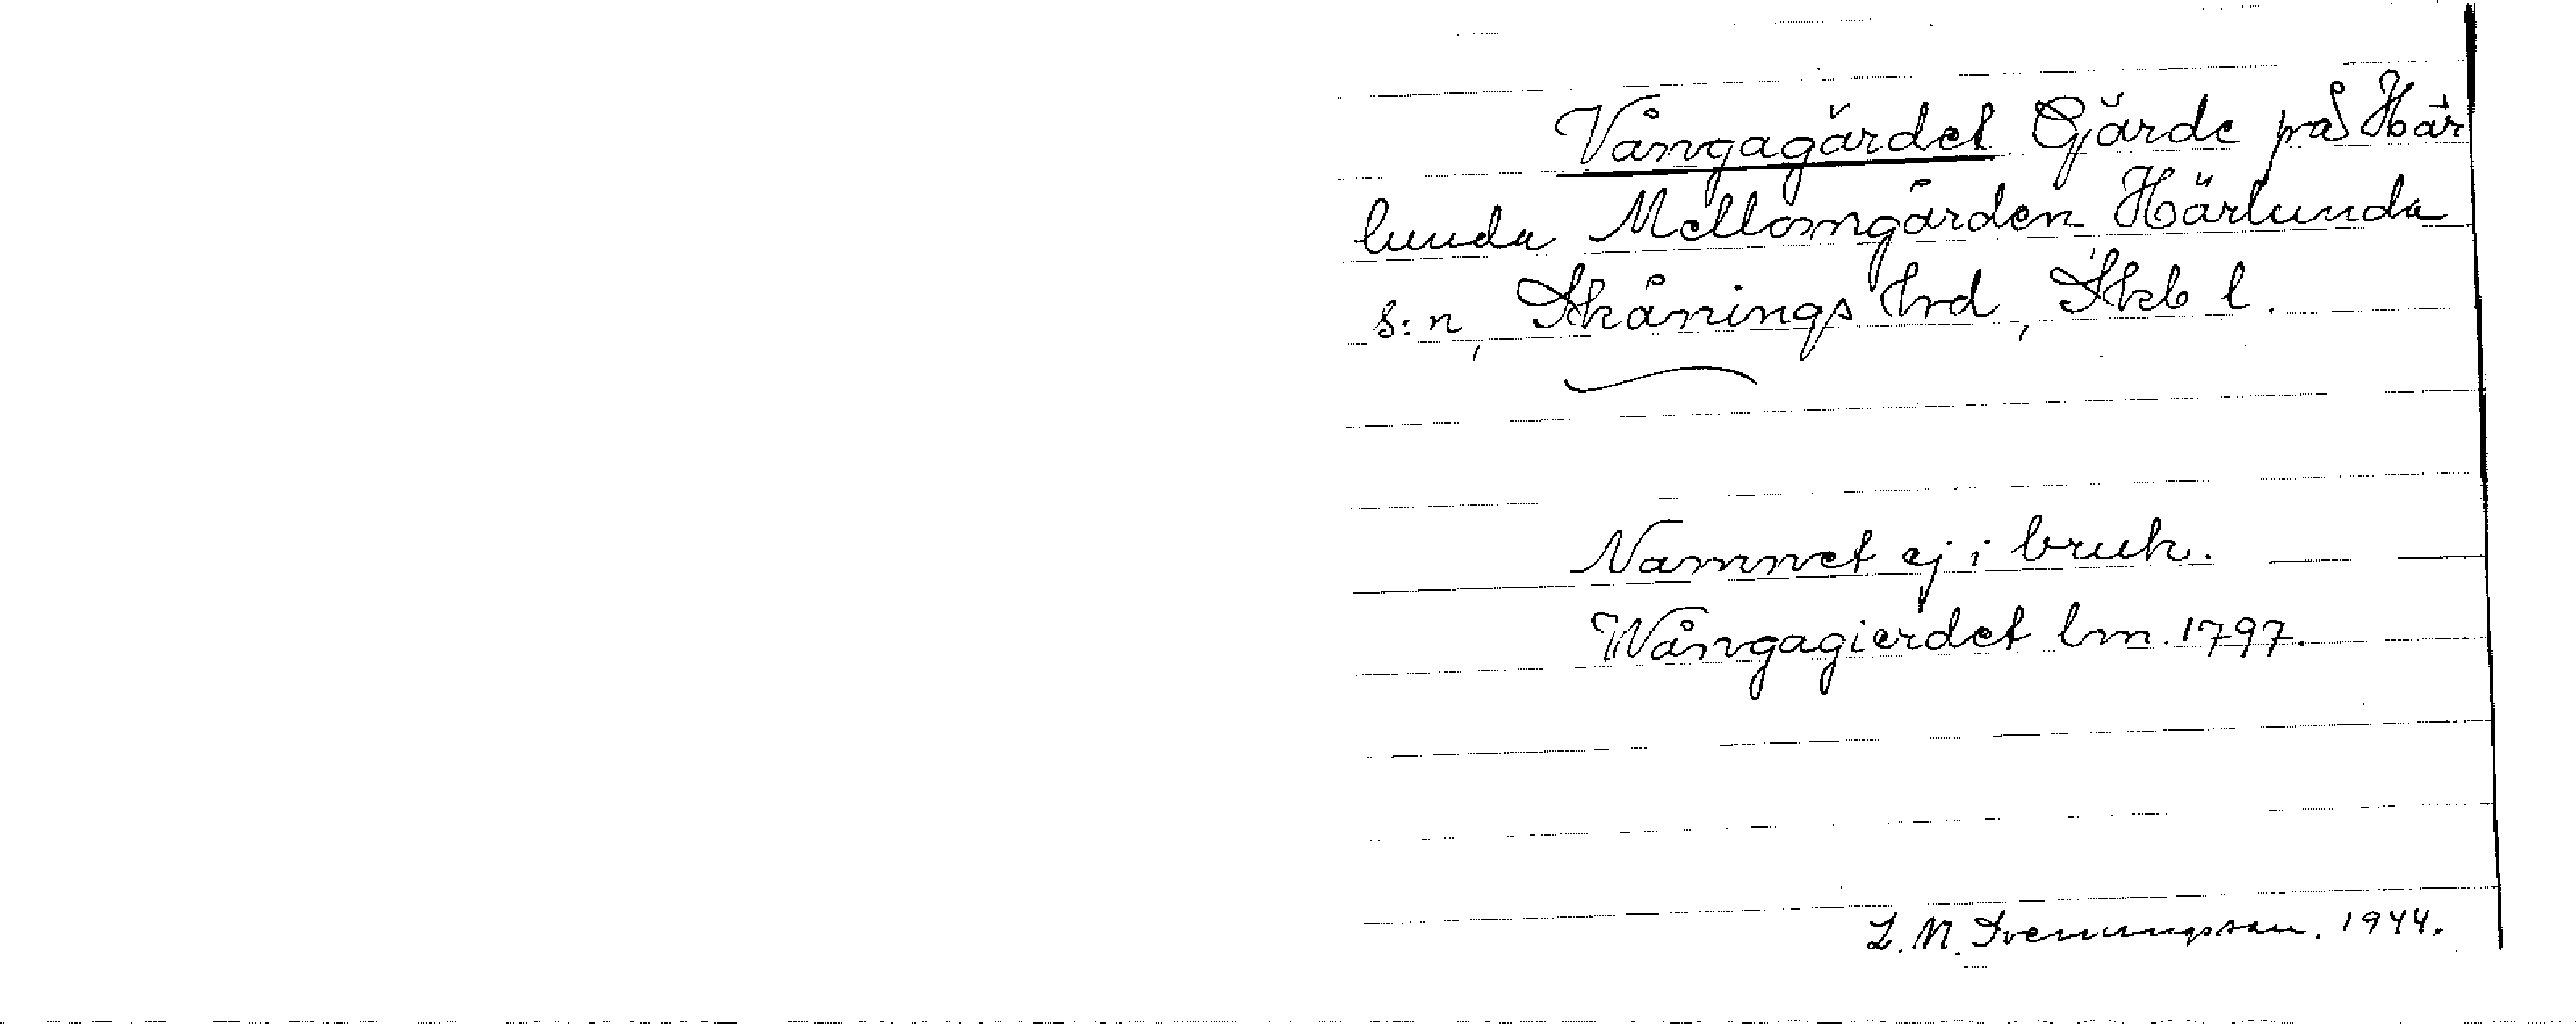 Vångagärdet Gärde på Här
lunda Mellomgården Härlunda
s:n, Skånings hrd, Skb l.
Namnet ej i bruk.
Wångagierdet lm. 1797.
L. M. Svenungsson. 1944.